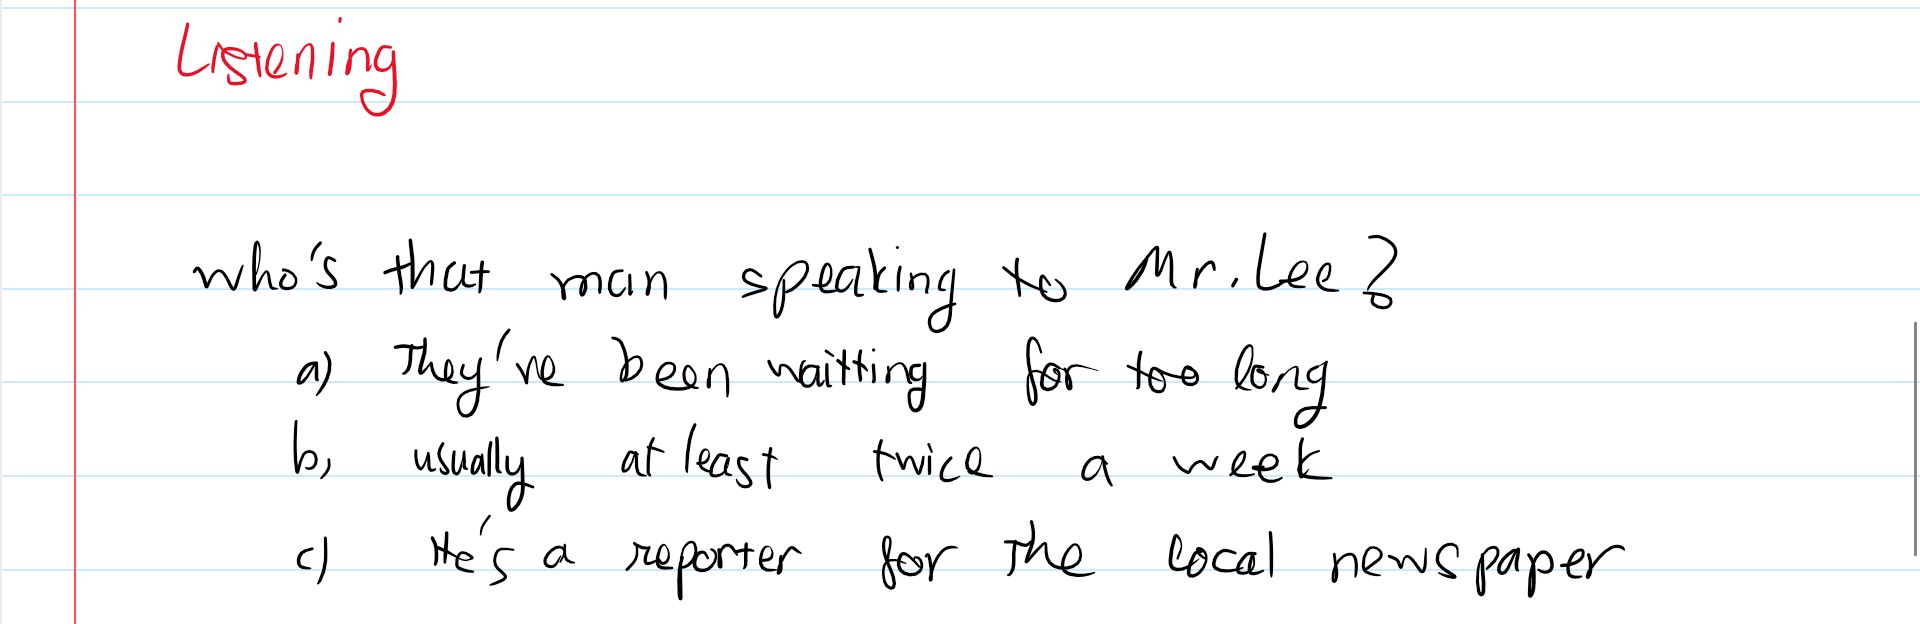 Listening
who's that man speaking to Mr. Lee?
a) They've been waitting for too long
b, usually at least twice a week
c) He's a reporter for the local newspaper